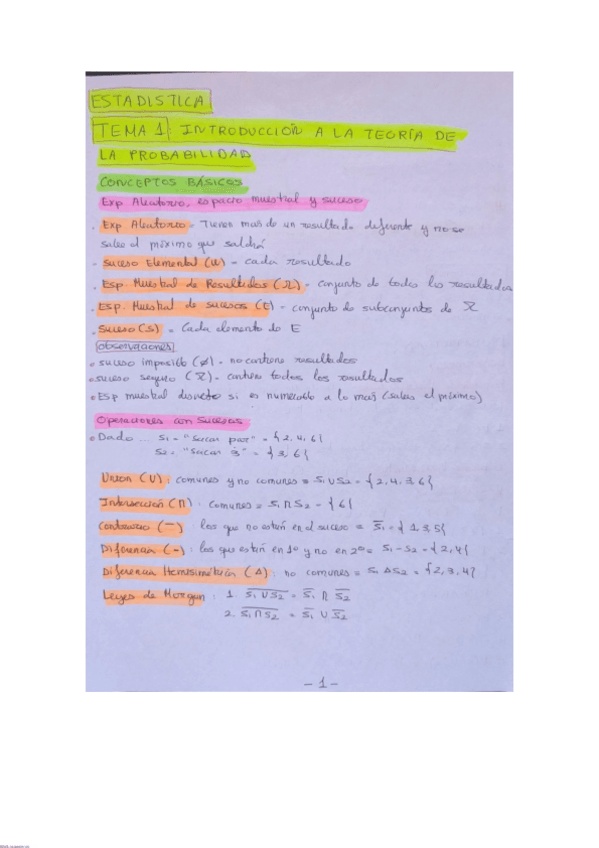 ESTADISTICA
TEMA 1: INTRODUCCIÓN A LA TEORÍA DE
LA PROBABILIDAD
CONCEPTOS BÁSICOS
Exp Aleatorio, espacio muestral y suceso
. Exp Aleatorio = Tienen mas de un resultado diferente y no se
sabe el próximo que saldrá
. Suceso Elemental (ω) = cada resultado
. Esp. Muestral de Resultados (Ω) = conjunto de todos los resultados
. Esp. Muestral de sucesos (E) = conjunto de subconjuntos de Ω
. Suceso (S) = Cada elemento de E
observaciones
• suceso imposible (∅) = no contiene resultados
• suceso seguro (Ω) = contiene todos los resultados
• Esp muestral discreto si es numerable a lo mas (sabes el próximo)
Operaciones con Sucesos
• Dado ... S1 = "Sacar par" = {2, 4, 6}
S2 = "Sacar 3̇" = {3, 6}
Union (U): comunes y no comunes = S1 U S2 = {2, 4, 3, 6}
Intersección (∩): comunes = S1 ∩ S2 = {6}
Contrario (—) los que no están en el suceso = S̅1 = {1, 3, 5}
Diferencia (-): los que están en 1º y no en 2º = S1 - S2 = {2, 4}
Diferencia Hemisimetrica (Δ): no comunes = S1 Δ S2 = {2, 3, 4}
Leyes de Morgan: 1. S̅1̅ ̅U̅ ̅S̅2̅ = S̅1 ∩ S̅2
2. S̅1̅ ̅∩̅ ̅S̅2̅ = S̅1 U S̅2
- 1 -